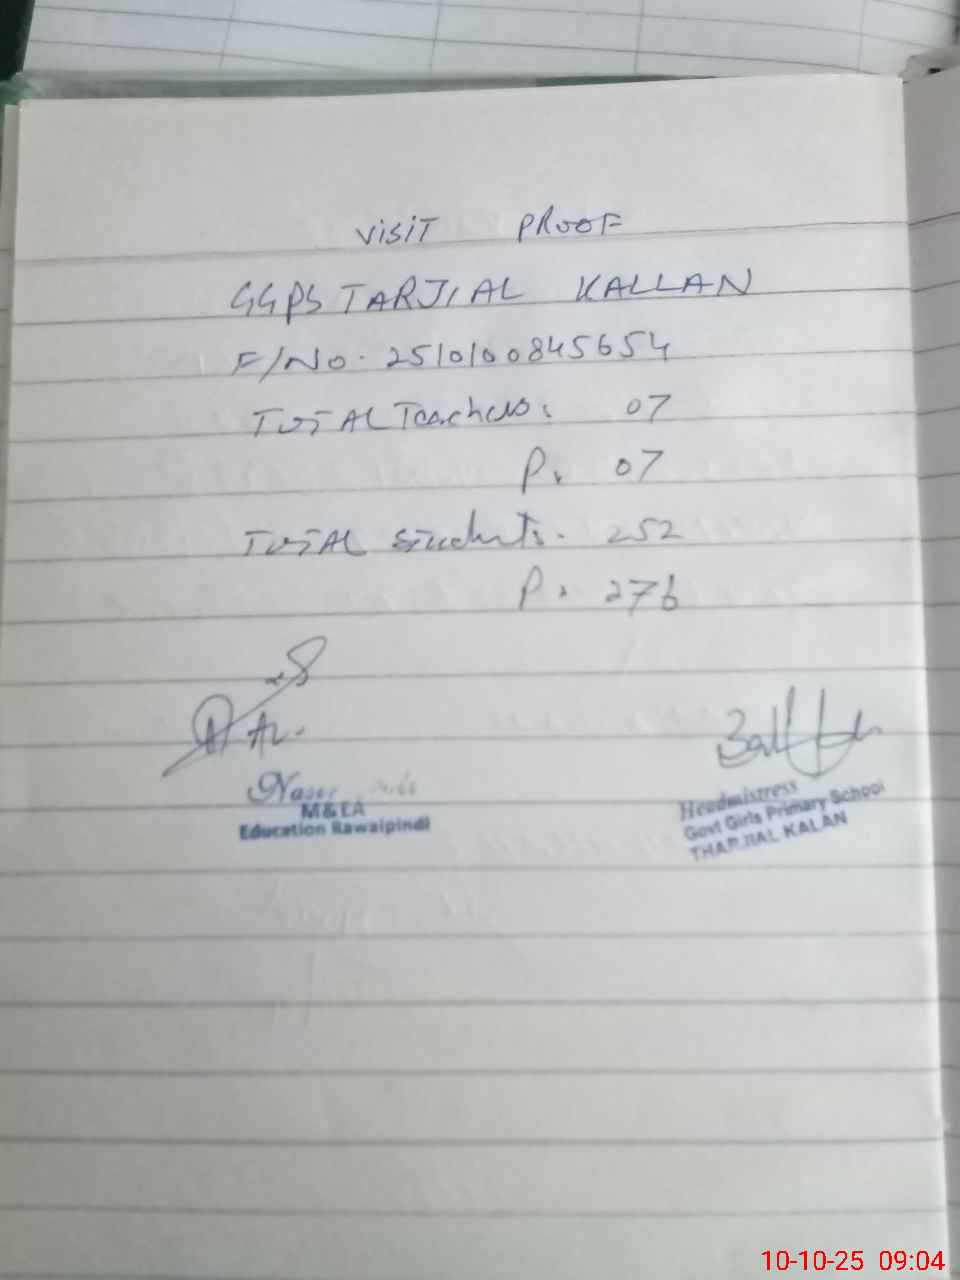 VISIT PROOF
GGPS TARJIAL KALLAN
F/No. 2510100845654
TOTAL Teachers: 07
P. 07
TOTAL students. 252
P. 276
M & EA
Education Rawalpindi
Headmistress
Govt Girls Primary School
THARJIAL KALAN
10-10-25 09:04